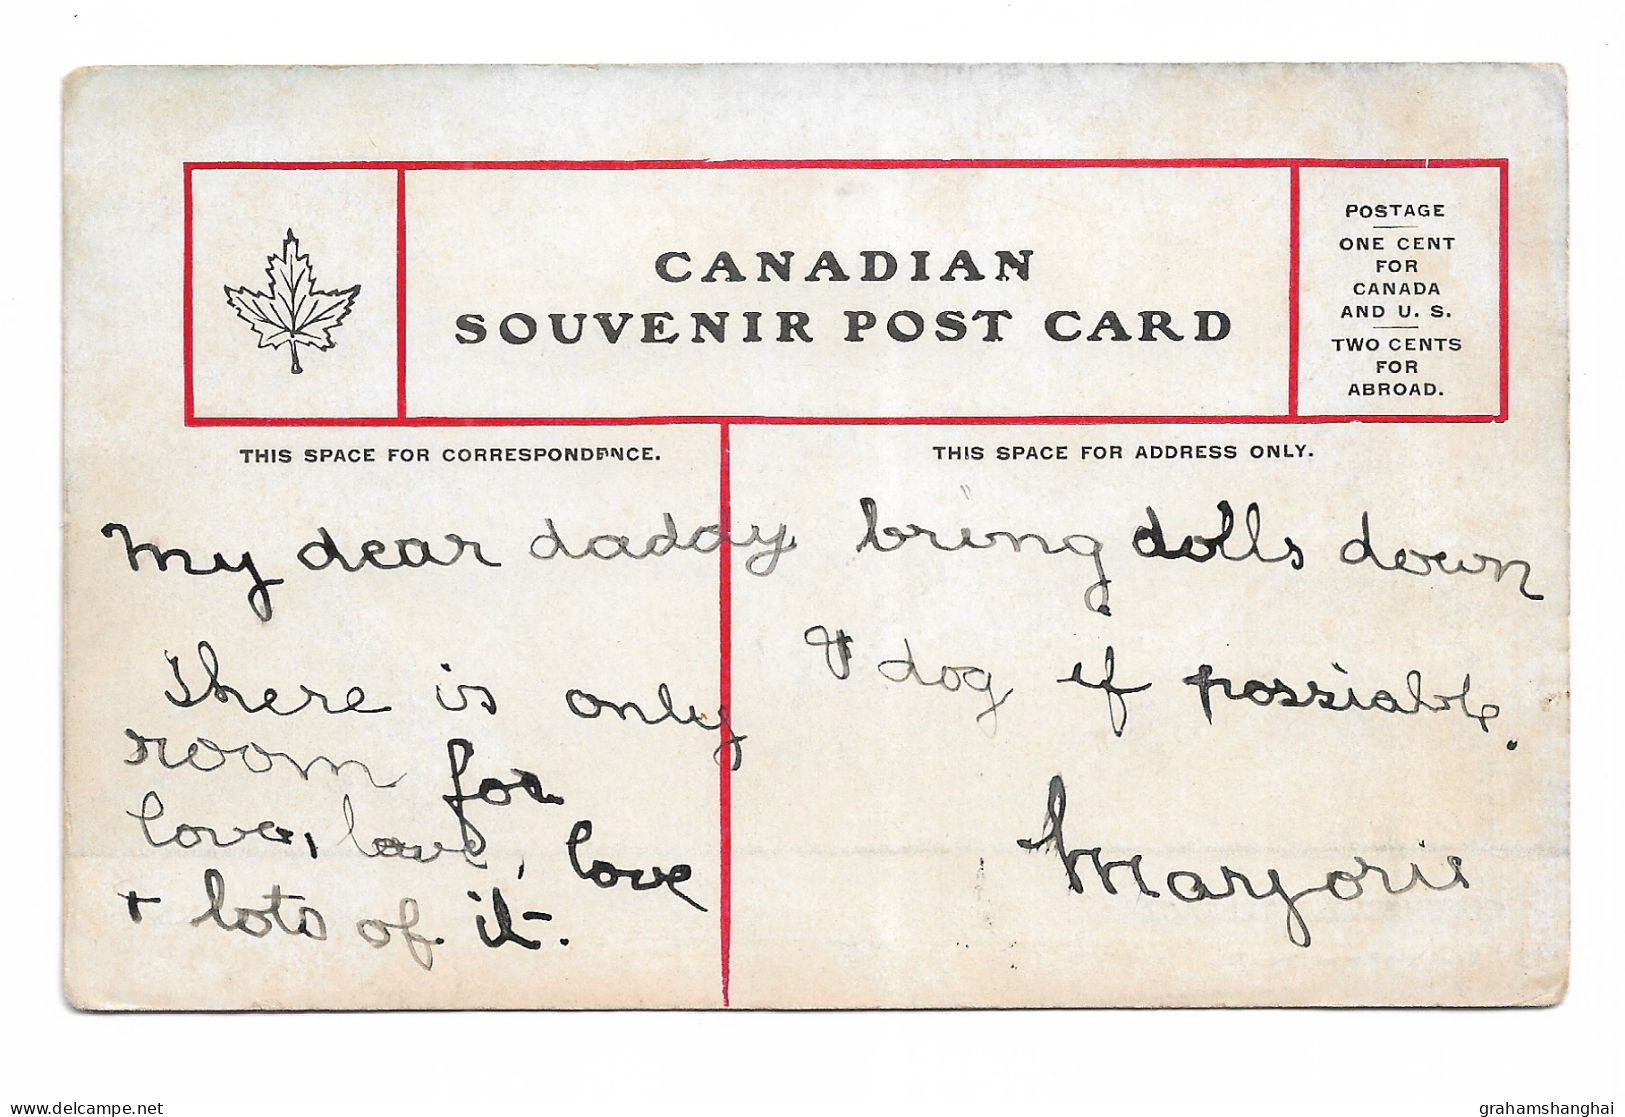 CANADIAN
SOUVENIR POST CARD
POSTAGE
ONE CENT
FOR
CANADA
AND U. S.
TWO CENTS
FOR
ABROAD.
THIS SPACE FOR CORRESPONDENCE.
THIS SPACE FOR ADDRESS ONLY.
My dear daddy
There is only
room for
love, love, love
+ lots of it.
bring dolls down
& dog if possiable.
Marjorie
delcampe.net
grahamshanghai